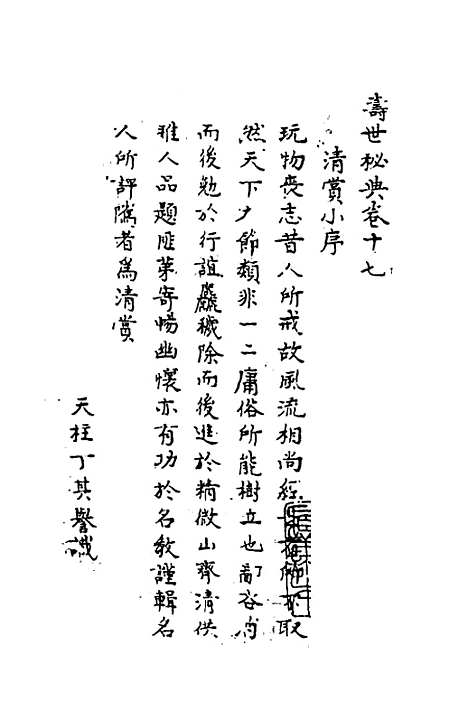 濤世秘典卷十七
清賞小序
玩物喪志昔人所戒故風流相尚經取
然天下夕節頹非一二庸俗所能樹立也鄙吝
而後勉於行誼麤穢除而後進於精微山齋清供
雅人品題匪苐寄暢幽懷亦有功於名教謹輯名
人所評隲者為清賞
天柱丁其譽識